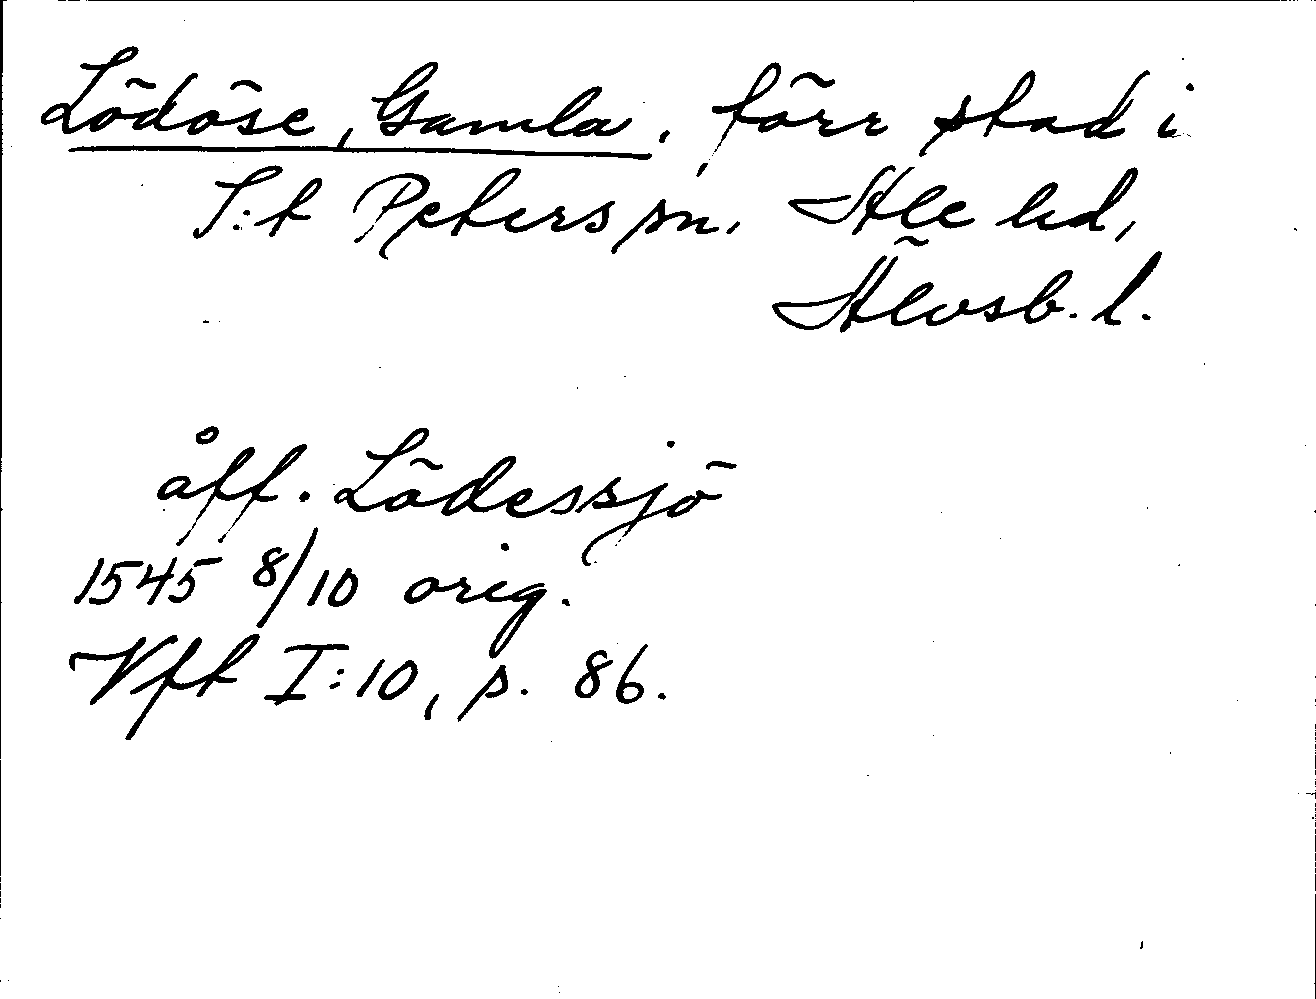 Lödöse, Gamla, förr stad i
S:t Peters sn, Ale hd,
Älvsb. l.
åff. Lödessjö
1545 8/10 orig.
Vft I:10, s. 86.